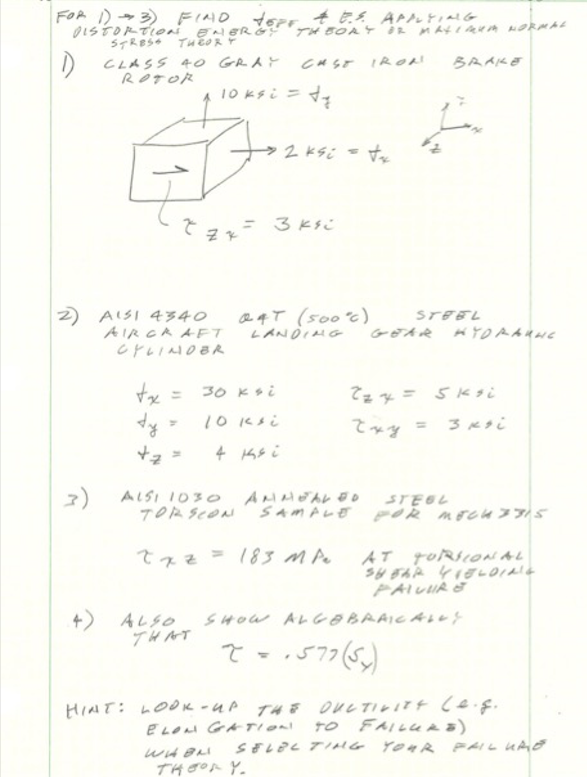 FOR 1) → 3) FIND σEFF & F.S. APPLYING
DISTORTION ENERGY THEORY OR MAXIMUM NORMAL
STRESS THEORY
1) CLASS 40 GRAY CAST IRON BRAKE
ROTOR
10 ksi = σy
2 ksi = σx
x
z
τzx = 3 ksi
2) AISI 4340 Q&T (500°C) STEEL
AIRCRAFT LANDING GEAR HYDRAULIC
CYLINDER
σx = 30 ksi τzx = 5 ksi
σy = 10 ksi τxy = 3 ksi
σz = 4 ksi
3) AISI 1030 ANNEALED STEEL
TORSION SAMPLE FOR MECH 3315
τxz = 183 MPa AT TORSIONAL
SHEAR YIELDING
FAILURE
4) ALSO SHOW ALGEBRAICALLY
THAT
τ = .577(Sy)
HINT: LOOK-UP THE DUCTILITY (e.g.
ELONGATION TO FAILURE)
WHEN SELECTING YOUR FAILURE
THEORY.